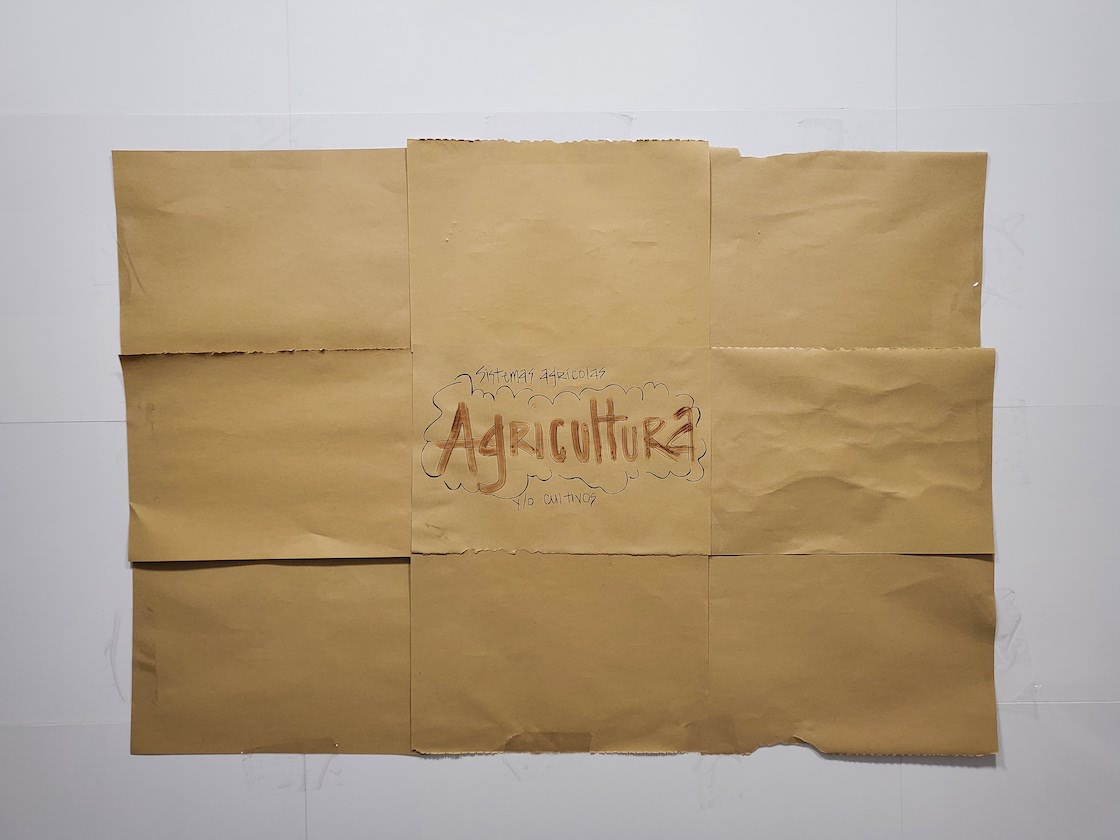 Sistemas agricolas
Agricultura
y/o cultivos